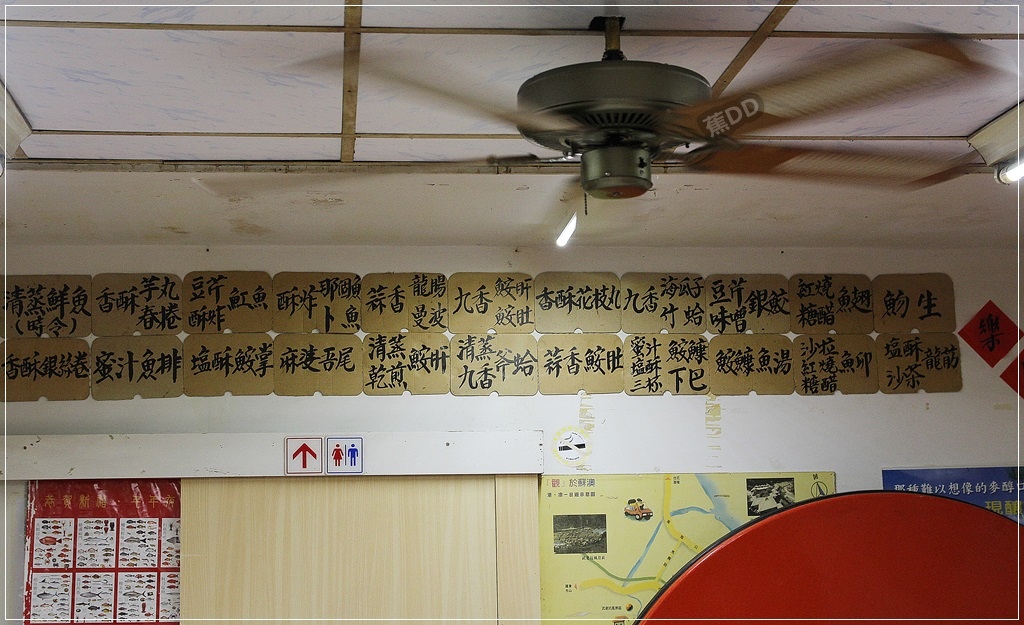 蕉DD
清蒸鮮魚
(時令)
香酥芋丸
春捲
豆芹魟魚
酥炸
酥炸那個魚
卜
蒜香龍腸
曼波
九香鮫肝
鮫肚
香酥花枝丸
九香海瓜子
什蛤
豆芹銀鮫
味噌
紅燒魚翅
糖醋
魩生
香酥銀絲卷
蜜汁魚排
塩酥鮫掌
麻婆吾尾
清蒸鮫肝
乾煎
清蒸斧蛤
九香
蒜香鮫肚
蜜汁鮫鱇
塩酥下巴
三杯
鮫鱇魚湯
沙拉魚卵
紅燒
糖醋
塩酥龍筋
沙茶
樂
恭賀新禧
「觀」於蘇澳
N
那種難以想像的麥醇口
現釀